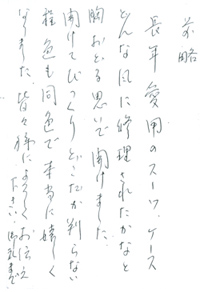 前略
長年愛用のスーツケース
どんな風に修理されたかなと
胸おどる思いで開けました。
開けてびっくりどこだか判らない
程色も同色で本当に嬉しく
なりました。皆々様によろしくお伝え
下さい。御礼まで